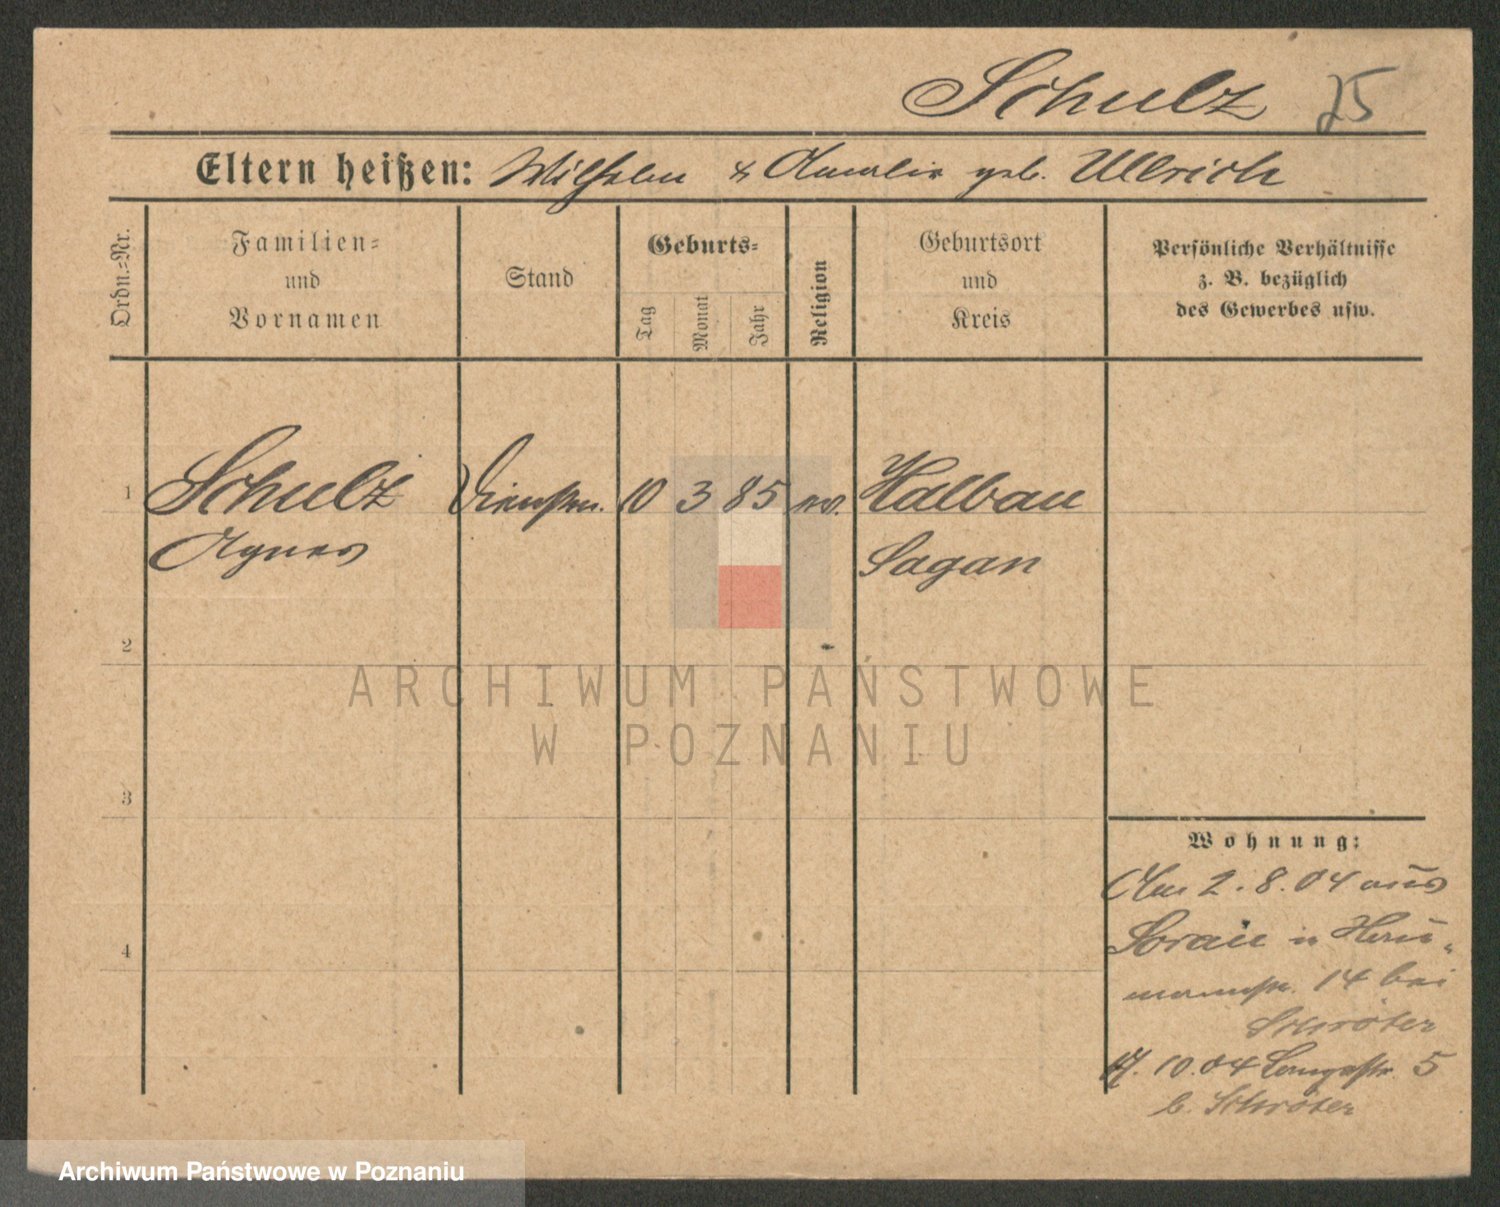 Schulz 25
Eltern heißen: Wilhelm & Amalie geb. Ullrich
Ordn.-Nr.
Familien-
und
Vornamen
Stand
Geburts-
Tag
Monat
Jahr
Religion
Geburtsort
und
Kreis
Persönliche Verhältnisse
z. B. bezüglich
des Gewerbes usw.
1 Schulz Dienstm. 10 3 85 ev. Halbau
Agnes Sagan
2
ARCHIWUM PAŃSTWOWE
W POZNANIU
3
Wohnung:
Am 2.8.04 aus
Sorau n Herr-
mannstr. 14 bei
Schröter
4
17.10.04 Langestr. 5
b. Schröter
Archiwum Państwowe w Poznaniu